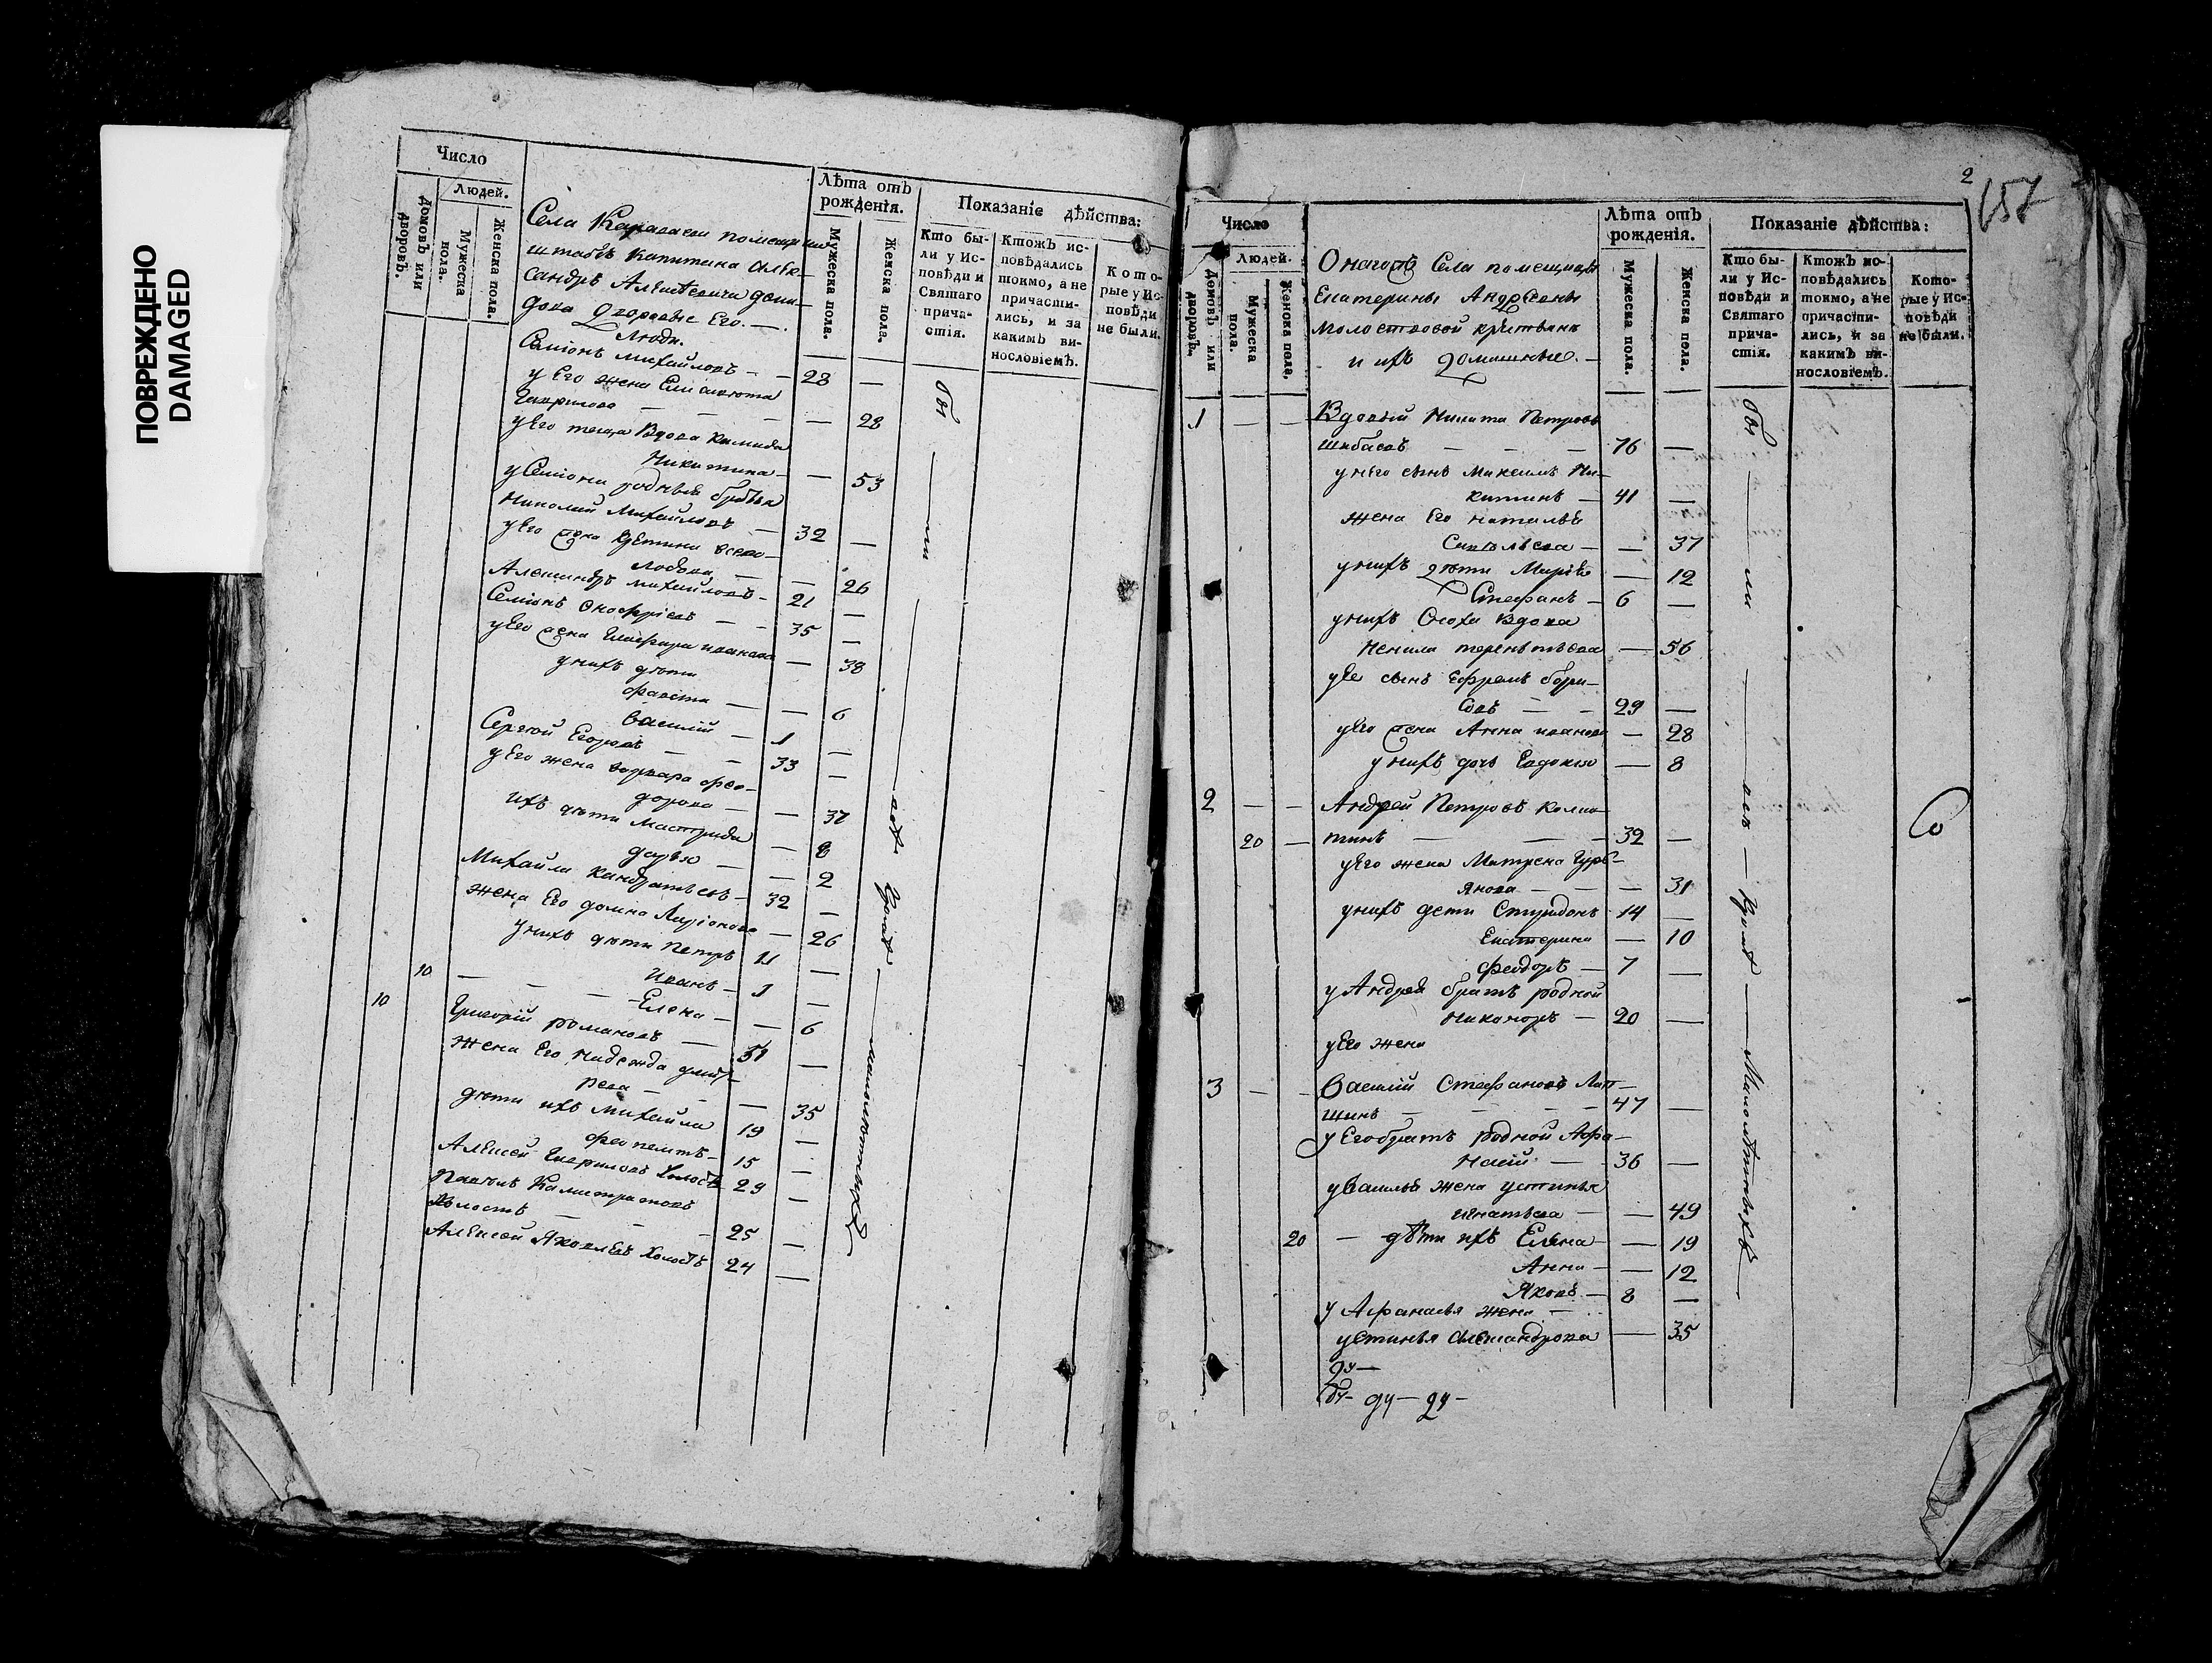 ПОВРЕЖДЕНО
DAMAGED
Число
Людей.
Домовъ или дворовъ.
Мужеска пола.
Женска пола.
Лѣта отъ рожденія.
Мужеска пола.
Женска пола.
Показаніе дѣйства:
Кто были у Исповѣди и Святаго причастія.
Ктожъ исповѣдались токмо, а не причастились, и за какимъ винословіемъ.
Которые у Исповѣди не были.
Села помещика
штабсъ Капитана Алек-
сандръ Алексѣевича
дова дворовые Его. —
Люди.
Семіонъ Михайловъ — — 28 —
у Его жена
Гаврилова — — — — 28
у Его теща Вдова
Никитина — — 53
у Семіона родныя братья
Николай Михайловъ — 32 —
у Его жена
— — 26
Александръ Михайловъ — 21 —
Семіонъ Онофріевъ — — 35 —
у Его жена Глафира Иванова — 38
у нихъ дѣти
— — 6
Василій — 1 —
Сергѣй Егоровъ — — 33 —
у Его жена Варвара Фео-
дорова — — 37
Ихъ дѣти — 8
Дарья — — 2
Михайла Кандратьевъ — 32 —
жена Его Домна Ларіонова — 26
у нихъ дѣти Петръ 11 —
10 — — — Иванъ — 1 —
10 Елена — — 6
Григорій Романовъ — —
жена Его Надежда Дмит-
рева — — — 35
дѣти ихъ Михайла 19 —
— 15 —
Алексей Гавриловъ Холостъ 29 —
Павелъ Калистратовъ
Холостъ — — — 25 —
Алексей Яковлевъ Холостъ 24 —
бы — ли — всѣ кромѣ — малолѣтнихъ
2
657
Число
Людей.
Домовъ или дворовъ.
Мужеска пола.
Женска пола.
Онагожъ Села помещицы
Екатерины Андреевны
Молоствовой крестьяне
и ихъ домашные. —
Лѣта отъ рожденія.
Мужеска пола.
Женска пола.
Показаніе дѣйства:
Кто были у Исповѣди и Святаго причастія.
Ктожъ исповѣдались токмо, а не причастились, и за какимъ винословіемъ.
Которые у Исповѣди не были.
1 — — Вдовый Никита Петровъ
Шибаевъ — — — 76 —
у него сынъ Максимъ Ни-
китинъ — 41 —
жена Его Наталья
Савельева — — 37
у нихъ дѣти Марья — 12
Стефанъ — 6 —
у нихъ Сноха Вдова
Ненила Терентьева — 56
у Ее сынъ Ефремъ Бори-
совъ — — 29 —
у Его жена Анна Иванова — 28
у нихъ дочь Евдокія — 8
2 — — Андрей Петровъ
20 — тинъ — — — 32 —
у Его жена Матрена Гурь-
янова — — — 31
у нихъ дети Спиридонъ 14 —
Екатерина — 10
Феодоръ — 7 —
у Андрея братъ родной
Никаноръ — 20 —
у Его жена
3 — — Василій Стефановъ Лап-
шинъ — — — 47 —
у Его братъ родной Афа-
насій — 36 —
у Василья жена Устинья
Игнатьева — — 49
20 — дѣти ихъ Елена — — 19
Анна — — 12
Яковъ — 8 —
у Афанасья жена —
Устинья Александрова — 35
ду —
ду — ду —
бы — ли — всѣ — кромѣ — Малолѣтнихъ —